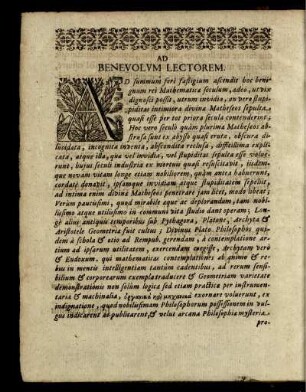 AD
BENEVOLVM LECTOREM.
AD summum ferè fastigium ascendit hoc beni-
gnum rei Mathematica seculum, adeò, ut vix
dignosci possit, utrum invidia, an verò stupi-
ditas hominum divina Matheseos sepulta,
quasi esse per tot priora secula contenderint.
Hoc verò seculò quàm plurima Matheseos ab-
strusa sunt ex abysso quasi eruta, obscura di-
lucidata, incognita inventa, abscondita reclusa, difficillima expli-
cata, atque illa, quæ vel invidia, vel stupiditas sepulta esse volue-
runt, hujus seculi industria ex horreno quasi resuscitabit, iisdem-
que novam vitam longè etiam nobiliorem, quàm antea habuerunt,
cordatè donavit, ipsamque invidiam atque stupiditatem sepelit,
ad intima enim divina Matheseos penetrare jam licet, modò libeat;
Verùm paucissimi, quod mirabile æquè ac deplorandum, tam nobi-
lissimo atque utilissimo in communi vita studio dant operam; Lon-
gè aliis antiquis temporibus sub Pythagora, Platone, Archyta &
Aristotele Geometria fuit cultus; Divinus Plato Philosophos quos-
dam à schola & otio ad Rempub. gerendam, à contemplatione ar-
tium ad ipsarum utilitatem, exercendam coegisse, Archytam verò
& Eudoxum, qui mathematicas contemplationes ab animo & re-
bus in mentis intelligentiam tantùm cadentibus, ad rerum sensi-
bilium & corporearum exempla traducere & Geometriam varietate
demonstrationis non solùm logica sed etiam practica per instrumen-
taria & machinalia, ὀργανικὰ καὶ μηχανικὰ exornare voluerunt, ex
indignatione, quòd nobilissimam Philosophorum possessionem in vul-
gus indicarent ac publicarent, & velut arcana Philosophiæ mysteria
pro-